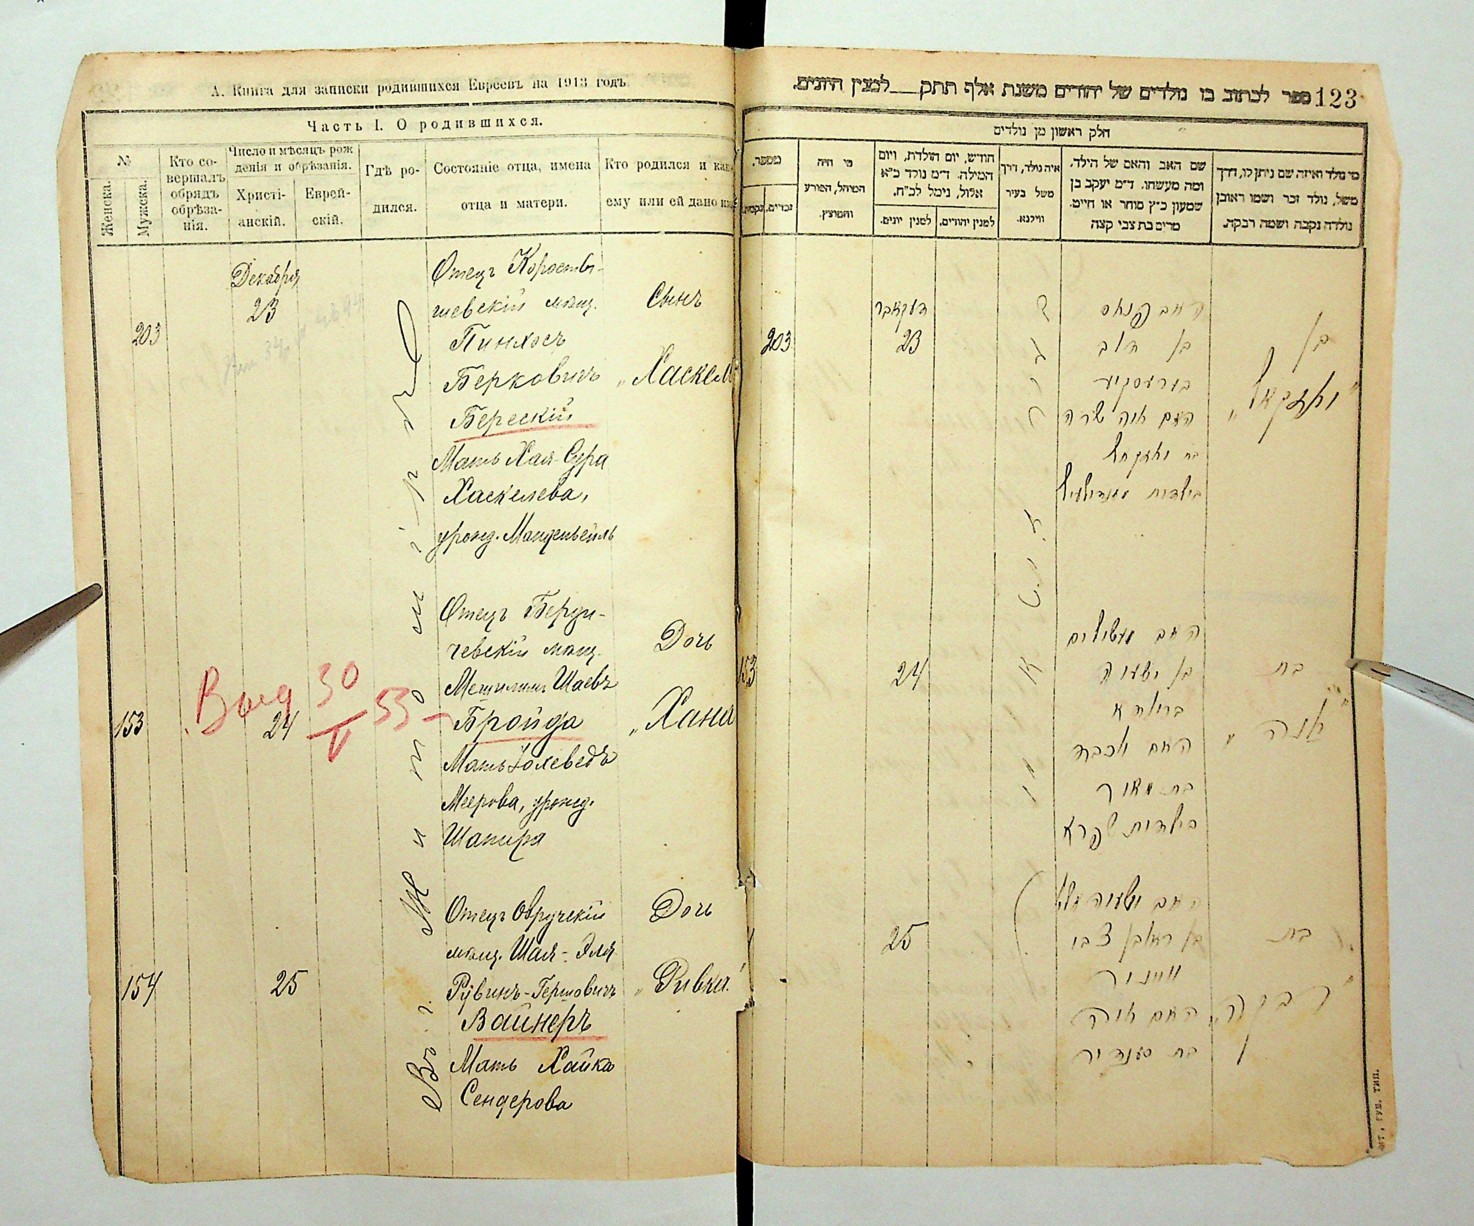 А. Книга для записки родившихся Евреевъ на 1913 годъ
Часть I. О родившихся.
№
Женска.
Мужска.
Кто со-
вершалъ
обрядъ
обрѣза-
нія.
Число и мѣсяцъ рож
денія и обрѣзанія.
Христі-
анскій.
Еврей-
скій.
Гдѣ ро-
дился.
Состояніе отца, имена
отца и матери.
Кто родился и как
ему или ей дано
203
Декабря
23
Отецъ Коросты-
шевскій мѣщ.
Пинхосъ
Берковичъ
Берескій
Мать Хая-Сура
Хаскелева,
урожд.
Сынъ
„Хаскель
Въ г. Житомірѣ
153
Выд 30/V 53
24
Отецъ Берди-
чевскій мѣщ.
Шаевъ
Бройда
Мать
Меерова, урожд.
Шапиро
Дочь
„Хана
154
25
Отецъ Овручскій
мѣщ. Шая-Эля
Рувинъ-Гершовичъ
Вайнеръ
Мать Хайка
Сендерова
Дочь
„Ривка“
ספר לכתוב בו נולדים של יהודים משנת אלף תתק למנין היונים.
123
חלק ראשון מן נולדים
מספר.
זכרים.
נקבות.
מי היה
המוהל, הפורע
והמוצץ.
חודש, יום הולדת, ויום
המילה. ד״מ נולד כ״א
אלול, נימול לכ״ח.
למנין יונים.
למנין יהודים.
איה נולד, דרך
משל בעיר
ווילנא.
שם האב והאם של הילד.
ומה מעשהו. ד״מ יעקב בן
שמעון כ״ץ סוחר או חייט.
מרים בת צבי קצה
מי נולד ואיזה שם ניתן לו, דרך
משל, נולד זכר ושמו ראובן
נולדה נקבה ושמה רבקה.
203
דעקאבר
23
האב פנחס
בן דוב
האם חיה שרה
בת יחזקאל
בן
„יחזקאל“
153
24
האב
בן ישעיה
ברוידא
האם יוכבד
בת מאיר
בילדות שפירא
בת
„חנה“
25
האב ישעיה אלי׳
בן ראובן צבי
וויינער
האם חיה
בת סענדיר
בת
„רבקה“